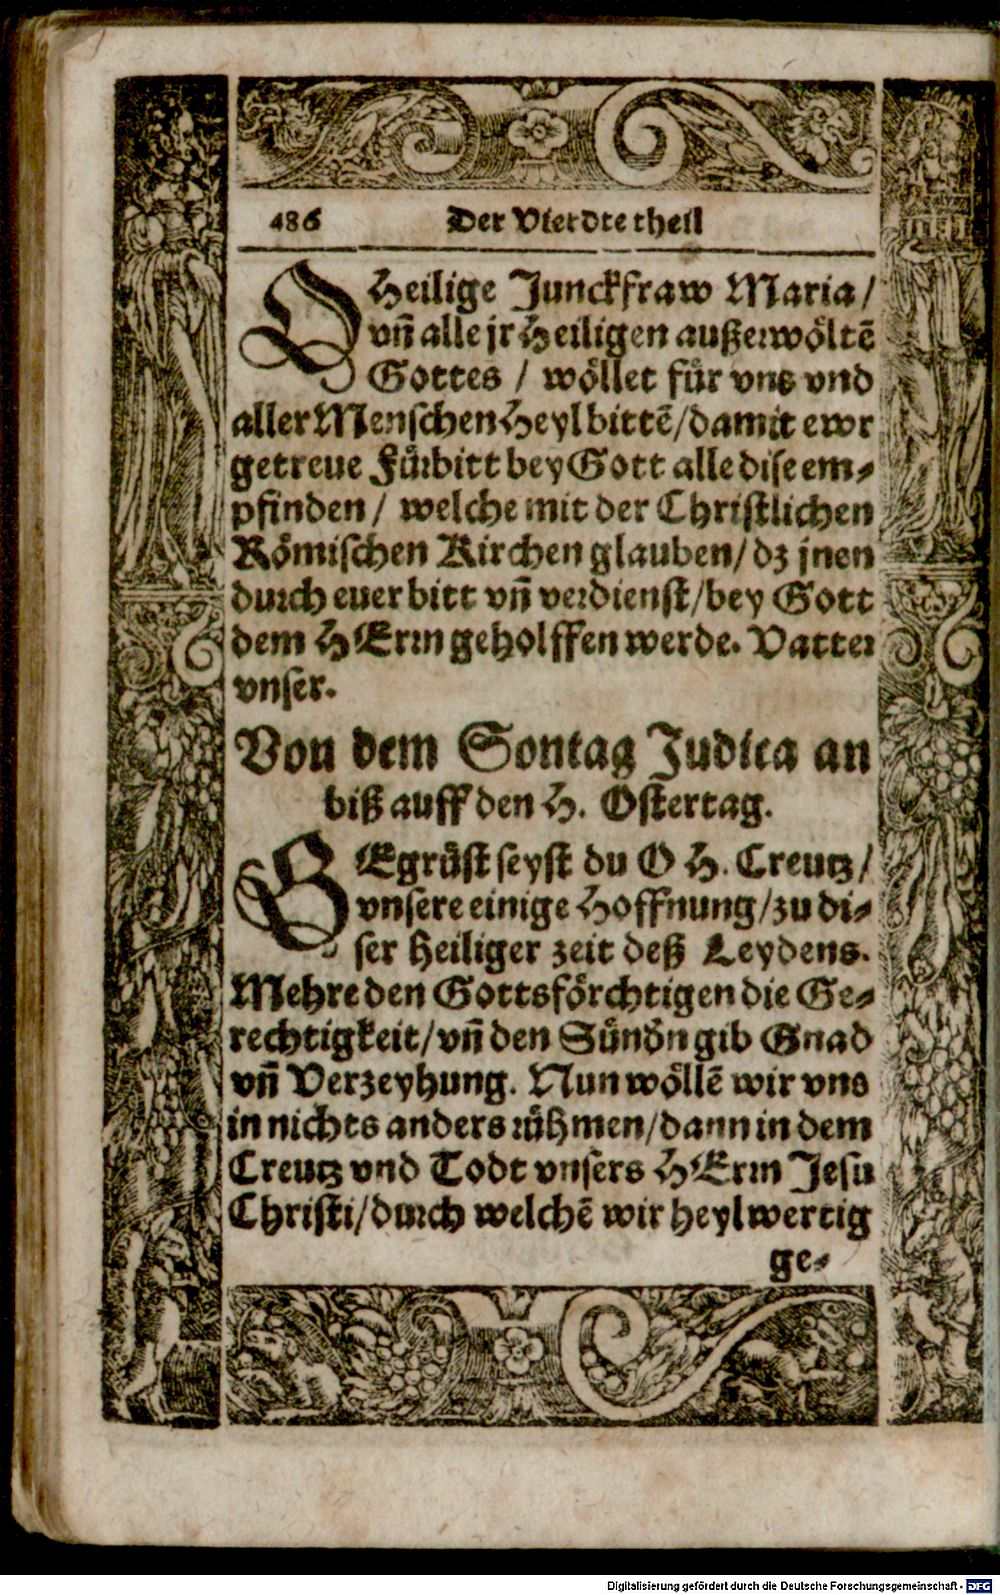 486 Der Vierdte theil
O Heilige Junckfraw Maria /
vñ alle jr Heiligen außerwöltẽ
Gottes / wöllet für vns vnd
aller Menschen Heyl bittẽ / damit ewr
getreue Fürbitt bey Gott alle dise em-
pfinden / welche mit der Christlichen
Römischen Kirchen glauben / dz jnen
durch euer bitt vñ verdienst / bey Gott
dem HErrn geholffen werde. Vatter
vnser.
Von dem Sontag Judica an
biß auff den H. Ostertag.
BEgrüst seyst du O H. Creutz /
vnsere einige Hoffnung / zu di-
ser Heiliger zeit deß Leydens.
Mehre den Gottsförchtigen die Ge-
rechtigkeit / vñ den Sündn̄ gib Gnad
vñ Verzeyhung. Nun wöllẽ wir vns
in nichts anders rühmen / dann in dem
Creutz vnd Todt vnsers HErrn Jesu
Christi / durch welchẽ wir heylwertig
ge-
Digitalisierung gefördert durch die Deutsche Forschungsgemeinschaft - DFG